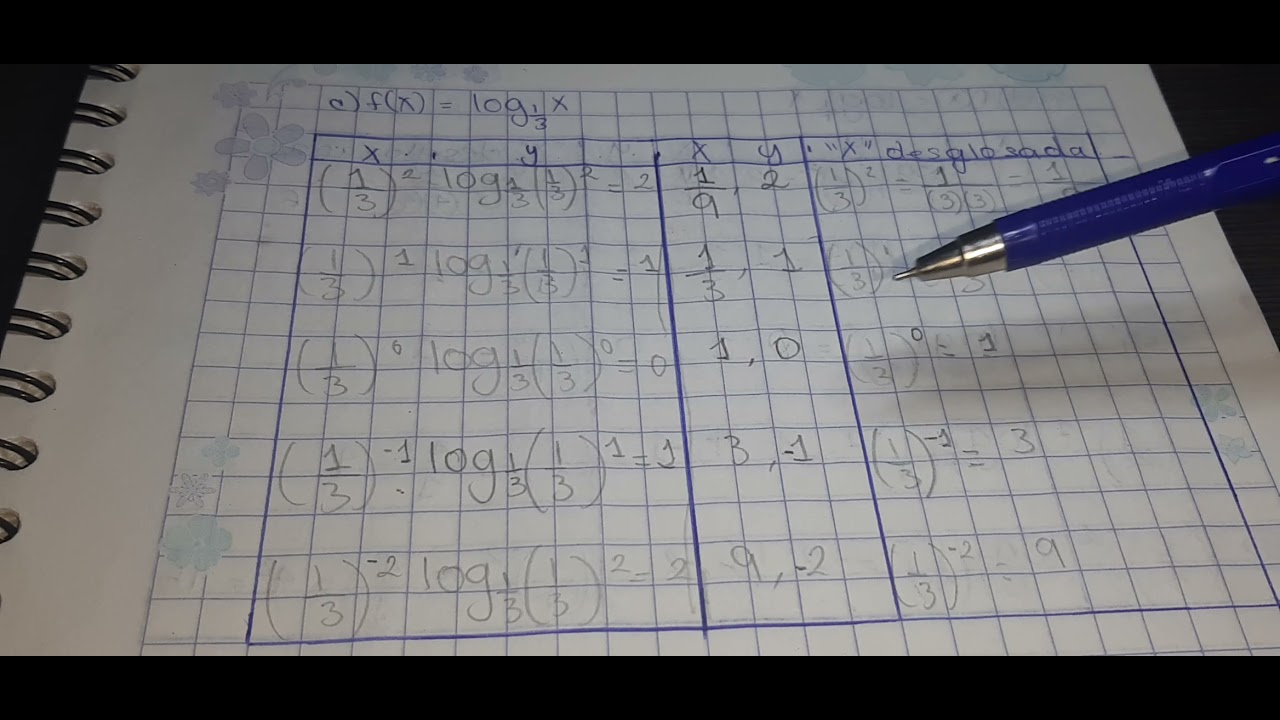 c) f(x) = log_{1/3} x
x y x y "x" desglosada
(1/3)^2 log_{1/3}(1/3)^2 = 2 1/9, 2 (1/3)^2 = 1/(3)(3) = 1/
(1/3)^1 log_{1/3}(1/3)^1 = 1 1/3, 1 (1/3)^1 3
(1/3)^0 log_{1/3}(1/3)^0 = 0 1, 0 (1/3)^0 = 1
(1/3)^-1 log_{1/3}(1/3)^1 = 1 3, -1 (1/3)^-1 = 3
(1/3)^-2 log_{1/3}(1/3)^2 = 2 9, -2 (1/3)^-2 = 9